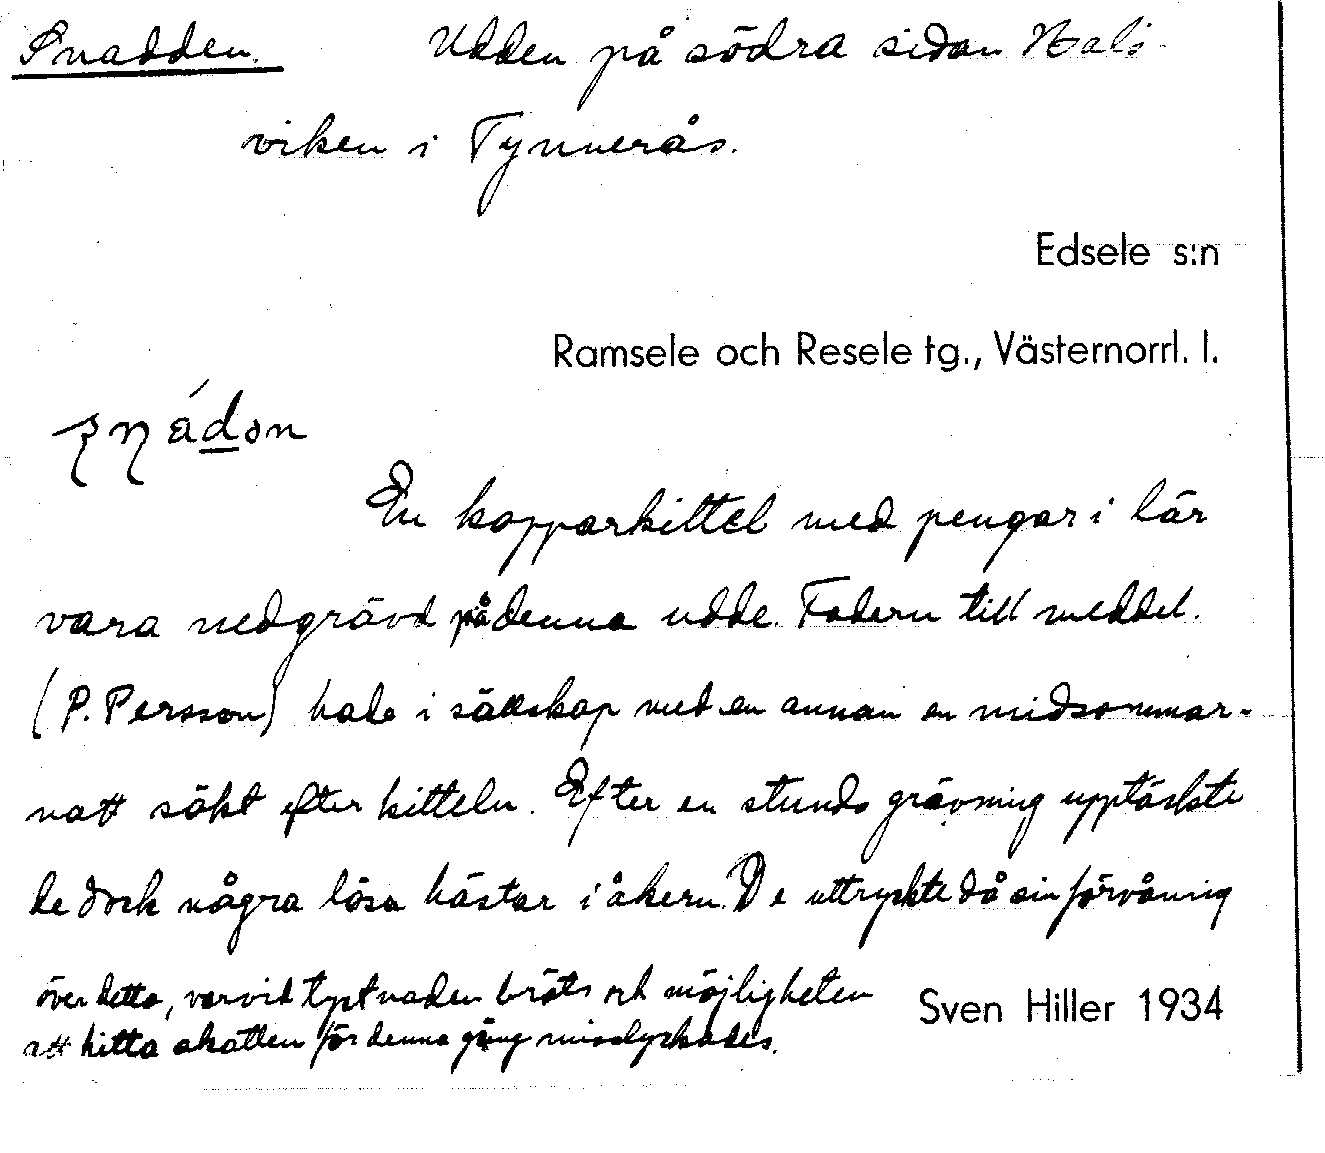 Snadden. Udden på södra sidan Hals-
viken i Tynnerås.
Edsele s:n
Ramsele och Resele tg., Västernorrl. l.
En kopparkittel med pengar i lär
vara nedgrävd på denna udde. Fadern till meddel.
(P. Persson) hade i sällskap med en annan en midsommar-
natt sökt efter kitteln. Efter en stunds grävning upptäckte
de dock några lösa hästar i åkern. De uttryckte då sin förvåning
över detta, varvid tystnaden bröts och möjligheten
att hitta skatten för denna gång misslyckades.
Sven Hiller 1934